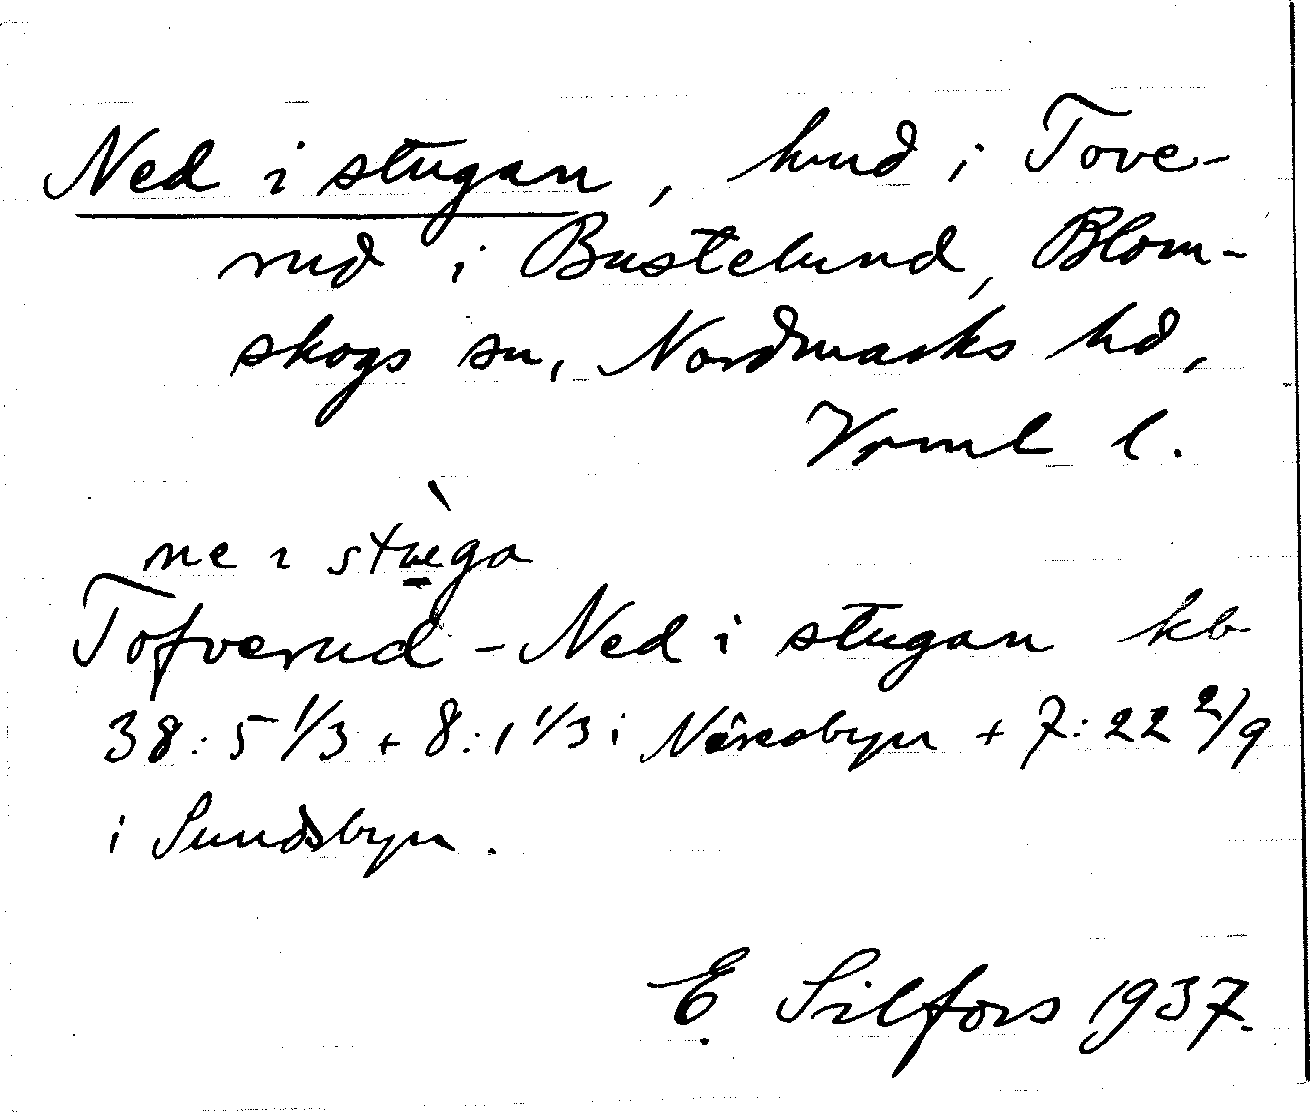 Ned i stugan, hmd i Tove-
rud i Bustelund, Blom-
skogs sn, Nordmarks hd,
Vrml l.
ne i stuga
Tofverud - Ned i stugan kb
38:5 1/3 + 8:1 1/3 i Näresbyn + 7:22 2/9
i Sundsbyn.
E. Silfors 1937.